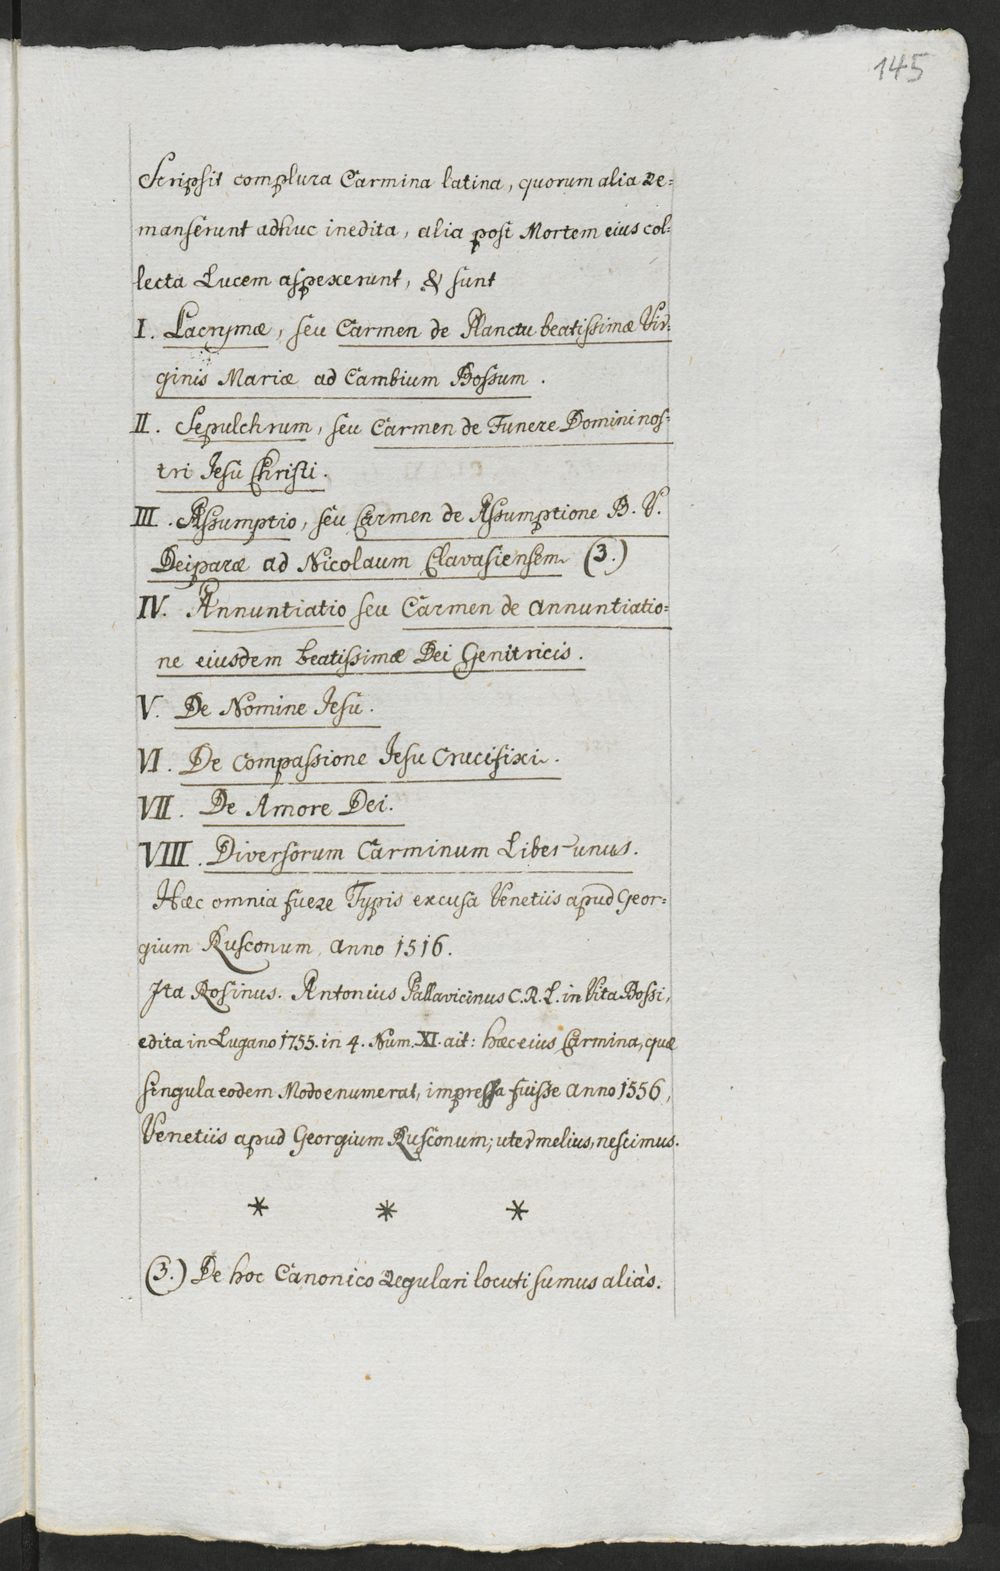 145
Scripsit complura Carmina latina, quorum alia re=
manserunt adhuc inedita, alia post Mortem eius col=
lecta Lucem aspexerunt, & sunt
I. Lacrymæ, seu Carmen de Planctu beatissimæ Vir=
ginis Mariæ ad Cambium Bossum.
II. Sepulchrum, seu Carmen de Funere Domini nos=
tri Jesu Christi.
III. Assumptio, seu Carmen de Assumptione B. V.
Deiparæ ad Nicolaum Clavasiensem (3.)
IV. Annuntiatio seu Carmen de annuntiatio=
ne eiusdem beatissimæ Dei Genitricis.
V. De Nomine Jesu.
VI. De Compassione Jesu Crucifixi.
VII. De Amore Dei.
VIII. Diversorum Carminum Liber unus.
Hæc omnia fuere Typis excusa Venetiis apud Geor=
gium Rusconum, anno 1516.
Ita Rosinus. Antonius Pallavicinus C.R.L. in Vita Bossi,
edita in Lugano 1755. in 4. Num. XI. ait: hæc eius Carmina, quæ
singula eodem Modo enumerat, impressa fuisse anno 1556,
Venetiis apud Georgium Rusconum; uter melius, nescimus.
* * *
(3.) De hoc Canonico regulari locuti sumus aliàs.